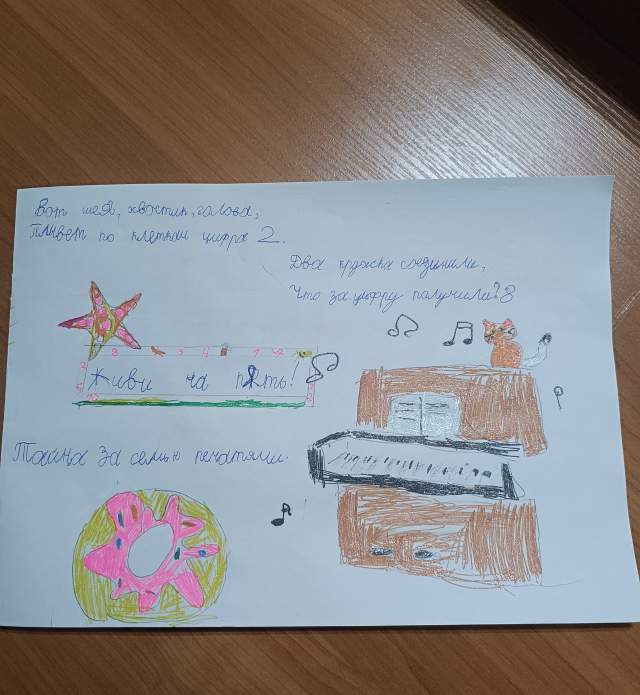 Вот шея, хвостик, голова,
Плывет по клеткам цифра 2.
Два кружка соединили,
Что за цифру получили? 8
Живи на пять!
Тайна за семью печатями.